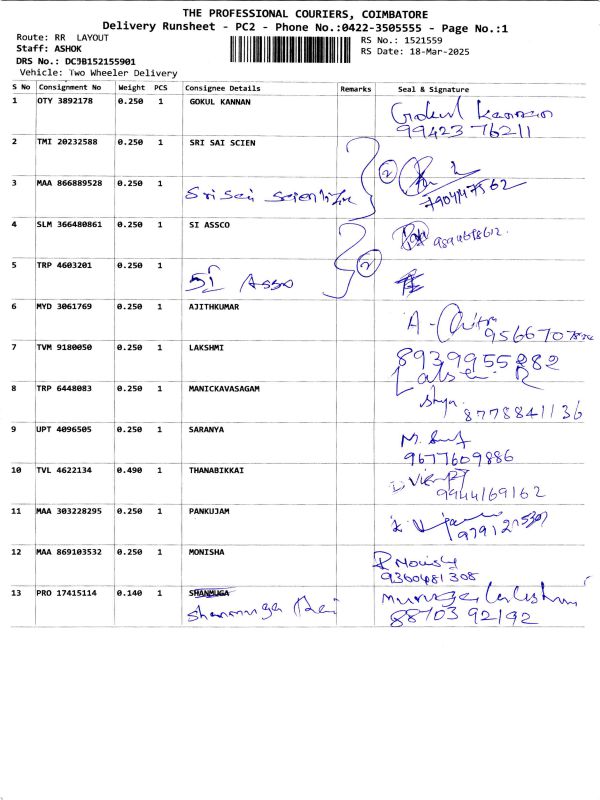 THE PROFESSIONAL COURIERS, COIMBATORE
Delivery Runsheet - PC2 - Phone No.:0422-3505555 - Page No.:1
Route: RR LAYOUT
RS No.: 1521559
Staff: ASHOK
RS Date: 18-Mar-2025
DRS No.: DC9B152155901
Vehicle: Two Wheeler Delivery
S No Consignment No Weight PCS Consignee Details Remarks Seal & Signature
1 OTY 3892178 0.250 1 GOKUL KANNAN Gokul Kannan
99423 76211
2 TMI 20232588 0.250 1 SRI SAI SCIEN
3 MAA 866889528 0.250 1 Sri Sai Scientific 2 7904147562
4 SLM 366480861 0.250 1 SI ASSCO
5 TRP 4603201 0.250 1 SI Asso 2
6 MYD 3061769 0.250 1 AJITHKUMAR A - Chitra
7 TVM 9180050 0.250 1 LAKSHMI 8939955282
8 TRP 6448083 0.250 1 MANICKAVASAGAM
8778841136
9 UPT 4096505 0.250 1 SARANYA
9677609886
10 TVL 4622134 0.490 1 THANABIKKAI
9944169162
11 MAA 303228295 0.250 1 PANKUJAM
12 MAA 869103532 0.250 1 MONISHA P Monish
9360481308
13 PRO 17415114 0.140 1 SHANMUGA
Shanmuga
88703 92192